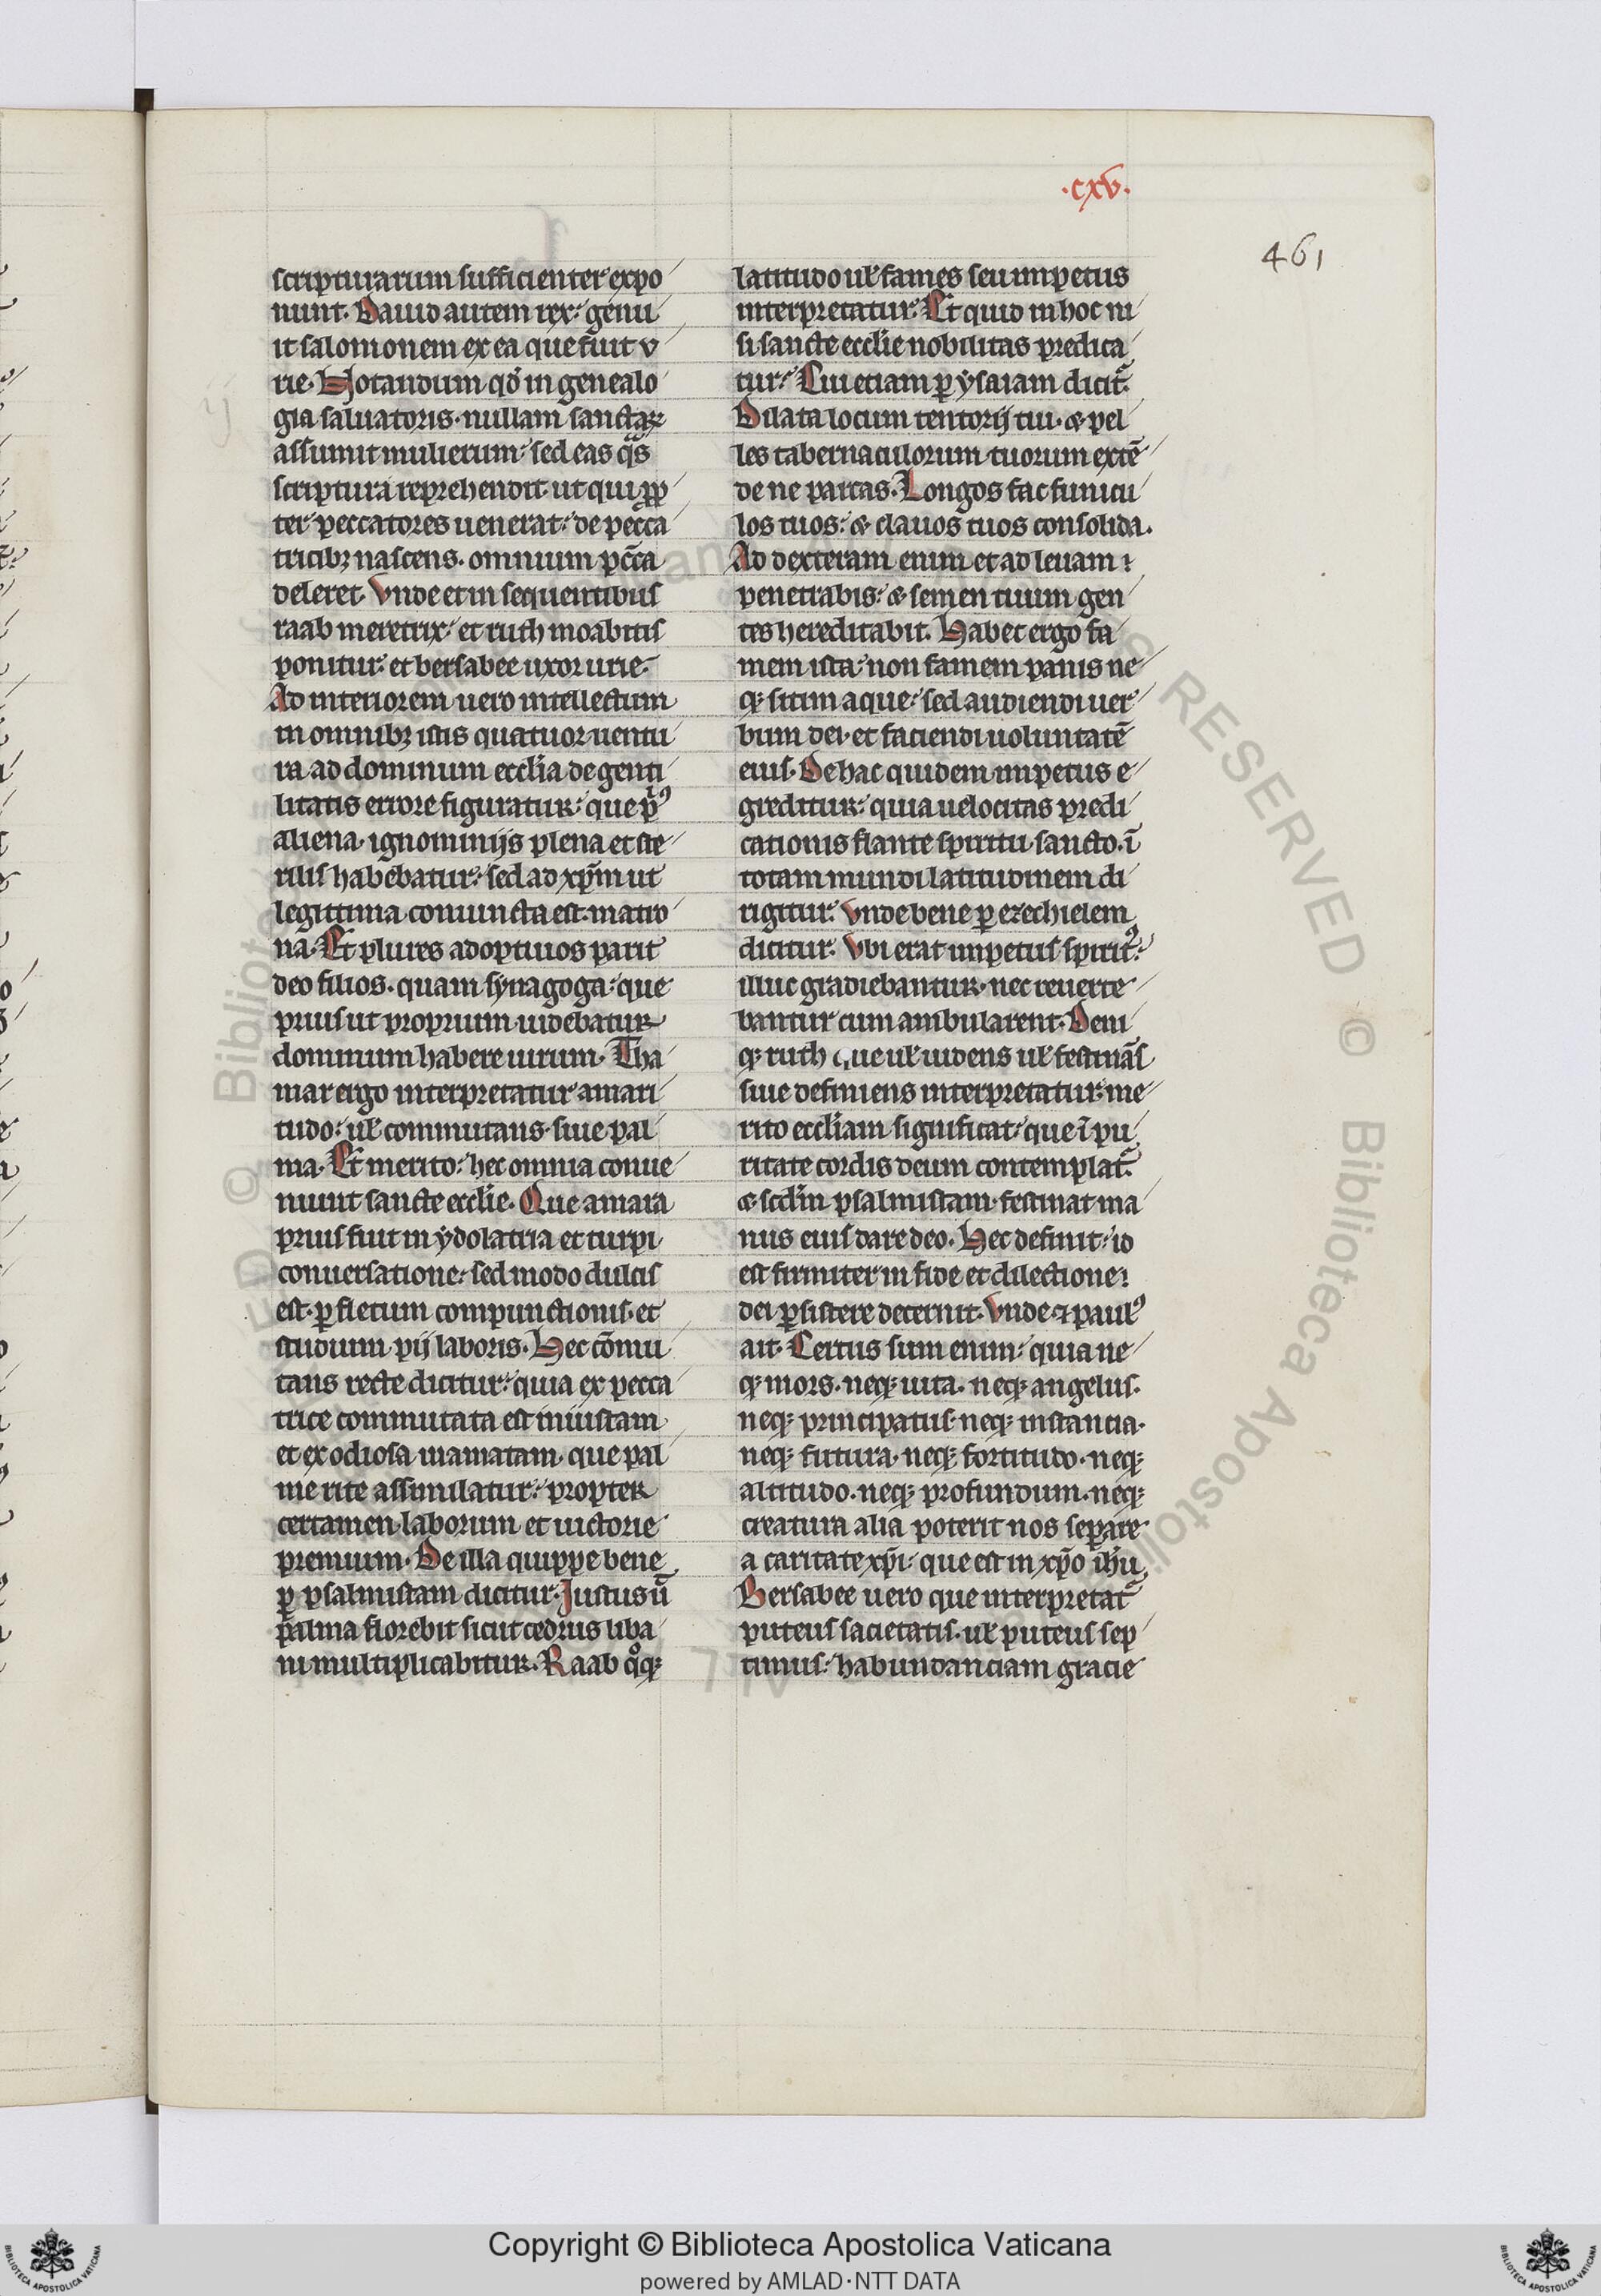 .cxv.
461
scripturarum sufficienter expo
nunt. Dauid autem rex: genu
it salomonem ex ea que fuit v
rie. Notandum qđ in genealo
gia saluatoris. nullam sanctaꝝ
assumit mulierum: sed eas qͣs
scriptura reprehendit. ut qui ꝓp
ter peccatores uenerat: de pecca
tricibꝫ nascens. omnium pc̄ca
deleret. Vnde et in sequentibus
raab meretrix: et ruth moabitis
ponitur. et bersabee uxor urie.
Ad interiorem uero intellectum
in omnibꝫ istis quatuor uentu
ra ad dominum eccl̄ia de genti
litatis errore figuratur: que pͥꝰ
aliena. ignominijs plena et ste
rilis habebatur: sed ad xp̄m ut
legittima coniuncta est matro
na. Et plures adoptiuos parit
deo filios. quam synagoga: que
prius ut proprium uidebatur
dominum habere uirum. Tha
mar ergo interpretatur amari
tudo: uel̄ commutans. siue pal
ma. Et merito: hec omnia conue
niunt sancte eccl̄ie. Que amara
prius fuit in ydolatria et turpi.
conuersatione: sed modo dulcis
est. ꝑ fletum compunctionis. et
studium pij laboris. Hec cōmu
tans recte dicitur: quia ex pecca
trice commutata est in iustam
et ex odiosa in amatam. que pal
me rite assimilatur: propter
certamen laborum et uictorie
premium. De illa quippe bene
ꝑ psalmistam dicitur. Justus ut̄
palma florebit sicut cedrus liba
ni multiplicabitur. Raab qͦꝗꝫ
latitudo ul̄ fames seu impetus
interpretatur. Et quid in hoc ni
si sancte eccl̄ie nobilitas predica
tur: Cui etiam ꝑ ysaiam dicitᷓ.
Dilata locum tentorij tui. & pel
les tabernaculorum tuorum extē
de ne parcas. Longos fac funicu
los tuos: & clauos tuos consolida.
Ad dexteram enim et ad leuam
penetrabis: & semen tuum gen
tes hereditabit. Habet ergo fa
mem ista: non famem panis ne
qꝫ sitim aque: sed audiendi uer
bum dei. et faciendi uoluntatē
eius. De hac quidem impetus e
greditur: quia uelocitas predi
cationis flante spiritu sancto. ī
totam mundi latitudinem di
rigitur. Vnde bene ꝑ ezechielem
dicitur. Vbi erat impetus spiritꝰ:
illuc gradiebantur. nec reuerte
bantur cum ambularent. Deni
qꝫ ruth que ul̄ uidens ul̄ festināſ
siue definiens interpretatur. me
rito eccl̄iam significat: que ī pu
ritate cordis deum contemplatᷓ.
& scd̄m psalmistam. festinat ma
nus eius dare deo. Hec definit: id
est firmiter in fide et dilectione
dei ꝑsistere decernit. Vnde & paulꝰ
ait. Certus sum enim: quia ne
qꝫ mors. neqꝫ uita. neqꝫ angelus.
neqꝫ principatus. neqꝫ instancia.
neqꝫ futura. neqꝫ fortitudo. neqꝫ
altitudo. neqꝫ profundum. neqꝫ
creatura alia poterit nos seꝑare
a caritate xp̄i: que est in xp̄o ih̄u.
Bersabee uero que interpretatᷓ
puteus sacietatis. ul̄ puteus sep
timus: habundanciam gracie
© Biblioteca Apostolica Vaticana ALL RIGHTS RESERVED © Biblioteca Apostolica
Copyright © Biblioteca Apostolica Vaticana
powered by AMLAD·NTT DATA
BIBLIOTECA APOSTOLICA VATICANA
BIBLIOTECA APOSTOLICA VATICANA